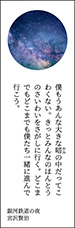 僕もうあんな大きな暗の中だってこ
わくない。きっとみんなのほんとう
のさいわいをさがしに行く。どこま
でもどこまでも僕たち一緒に進んで
行こう。
銀河鉄道の夜
宮沢賢治